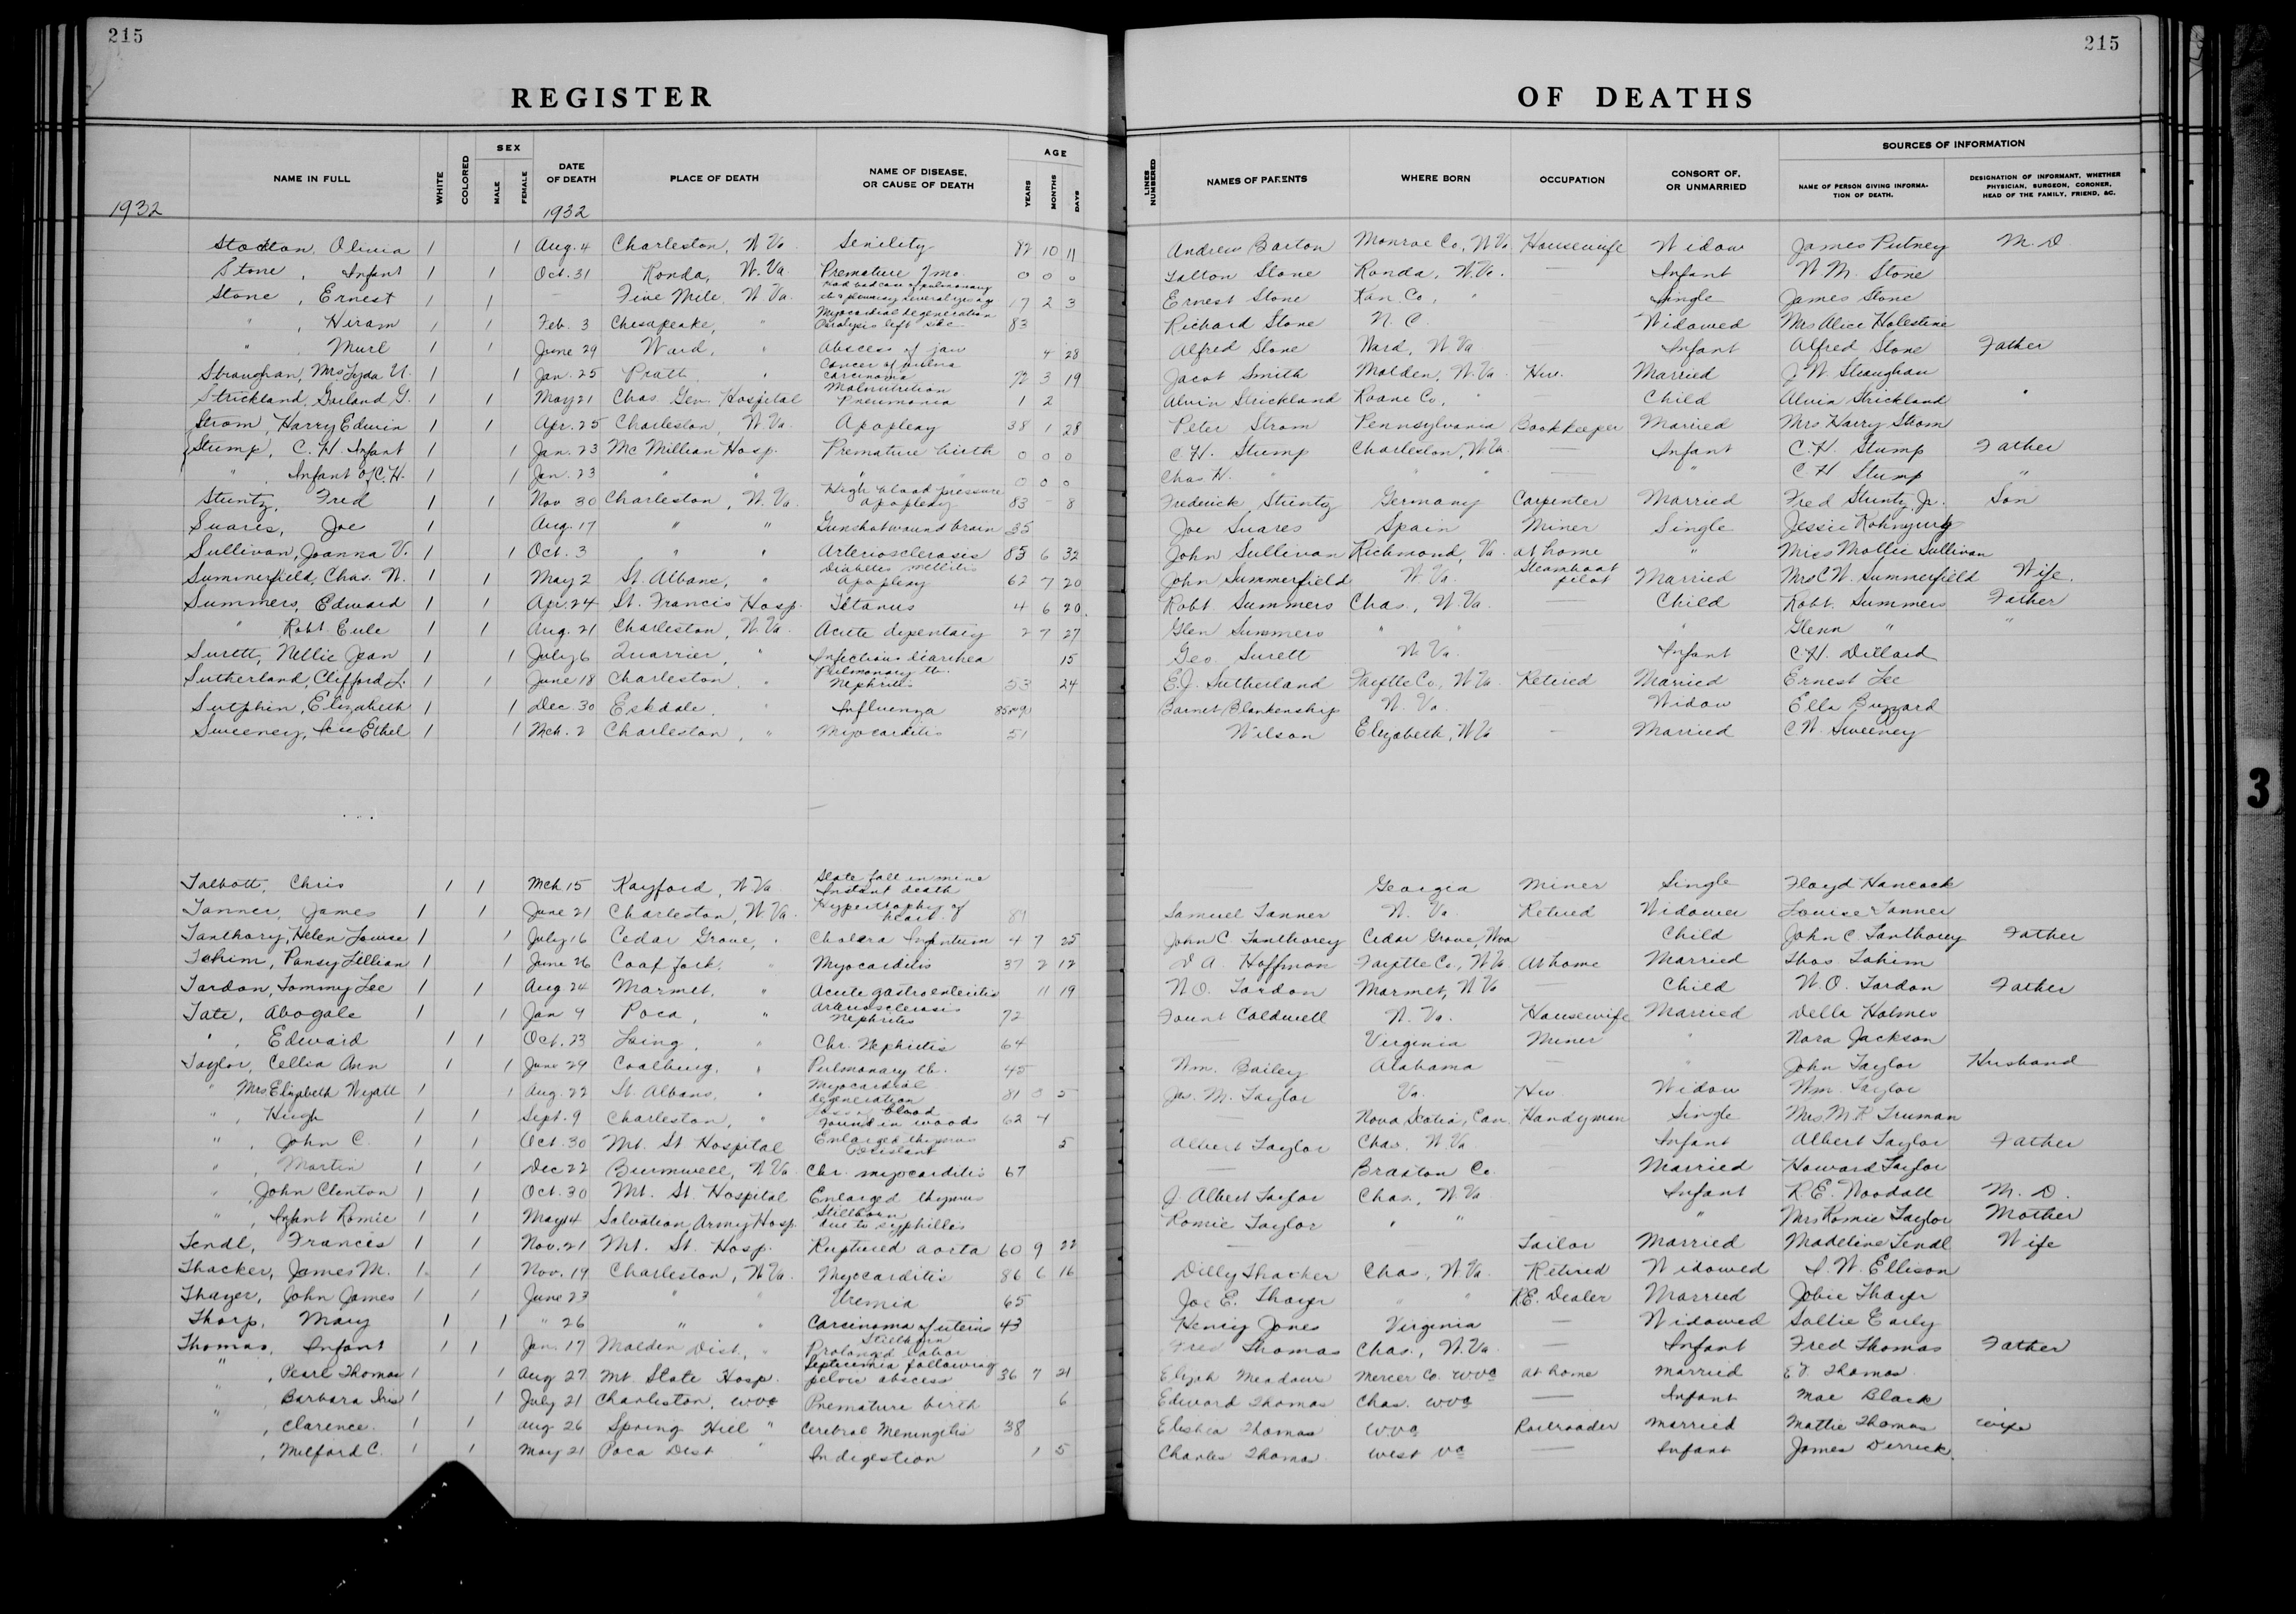 215
215
REGISTER OF DEATHS
NAME IN FULL WHITE COLORED SEX MALE FEMALE DATE OF DEATH PLACE OF DEATH NAME OF DISEASE, OR CAUSE OF DEATH AGE YEARS MONTHS DAYS LINES NUMBERED NAMES OF PARENTS WHERE BORN OCCUPATION CONSORT OF, OR UNMARRIED SOURCES OF INFORMATION NAME OF PERSON GIVING INFORMATION OF DEATH. DESIGNATION OF INFORMANT, WHETHER PHYSICIAN, SURGEON, CORONER, HEAD OF THE FAMILY, FRIEND, &C.
1932 1932
Stockton, Olivia 1 1 Aug. 4 Charleston, W. Va. Senility 82 10 11 Andrew Barton Monroe Co., W. Va. Housewife Widow James Putney M. D.
Stone, Infant 1 1 Oct. 31 Ronda, W. Va. Premature 7 mo. 0 0 0 Talton Stone Ronda, W. Va. — Infant W. M. Stone
Stone, Ernest 1 1 — Five Mile, W. Va. 17 2 3 Ernest Stone Kan. Co., " Single James Stone
" , Hiram 1 1 Feb. 3 Chesapeake, " Myocardial degeneration Paralysis left side 83 Richard Stone N. C. Widowed Mrs Alice Holestine
" , Murl 1 1 June 29 Ward, " Abscess of jaw 4 28 Alfred Stone Ward, W. Va. Infant Alfred Stone Father
Straughan, Mrs Lyda U. 1 1 Jan. 25 Pratt, " Cancer of carcinoma 72 3 19 Jacob Smith Malden, W. Va. Hw. Married J. W. Straughan
Strickland, Garland G. 1 1 May 21 Chas. Gen. Hospital Malnutrition Pneumonia 1 2 Alvin Strickland Roane Co., " — Child Alvin Strickland "
Strom, Harry Edwin 1 1 Apr. 25 Charleston, W. Va. Apoplexy 38 1 28 Peter Strom Pennsylvania Bookkeeper Married Mrs Harry Strom
Stump, C. H. Infant 1 1 Jan. 23 Mc Millian Hosp. Premature birth 0 0 0 C. H. Stump Charleston, W. Va. — Infant C. H. Stump Father
" Infant of C. H. 1 1 Jan. 23 " " " " 0 0 0 Chas. H. " " " — " C H Stump "
Stuntz, Fred 1 1 Nov 30 Charleston, W. Va. High blood pressure apoplexy 83 — 8 Frederick Stuntz Germany Carpenter Married Fred Stuntz, Jr. Son
Suares, Joe 1 Aug. 17 " " Gunshot wound brain 35 Joe Suares Spain Miner Single Jessie
Sullivan, Joanna V. 1 1 Oct. 3 " " Arteriosclerosis 85 6 32 John Sullivan Richmond, Va. at home " Miss Mollie Sullivan
Summerfield, Chas. W. 1 1 May 2 St. Albans, " Diabetes mellitis Apoplexy 62 7 20 John Summerfield W. Va. Steamboat pilot Married Mrs C W. Summerfield Wife.
Summers, Edward 1 1 Apr. 24 St. Francis Hosp. Tetanus 4 6 20 Robt Summers Chas., W. Va. — Child Robt. Summers Father
" Robt. Eule 1 1 Aug. 21 Charleston, W. Va. Acute dysentary 2 7 27 Glen Summers " " — " Glenn " "
Surett, Nellie Jean 1 1 July 6 Quarrier, " Infectious diarrhea 15 Geo Surett W. Va. Infant C. H. Dillard
Sutherland, Clifford L. 1 1 June 18 Charleston, " Pulmonary tb. Nephritis 53 24 E. J. Sutherland Fayette Co., W. Va. Retired Married Ernest Lee
Sutphin, Elizabeth 1 1 Dec 30 Eskdale, " Influenza Barnet Blankenship W. Va. — Widow Ella Buzzard
Sweeney, Ethel 1 1 Mch. 2 Charleston, " Myocarditis 51 Wilson Elizabeth, W Va — Married C W. Sweeney
Talbott, Chris 1 1 Mch 15 Kayford, W Va Slate fall in mine Instant death — Georgia Miner Single Floyd Hancock
Tanner, James 1 1 June 21 Charleston, W. Va. Hypertrophy of heart. 81 Samuel Tanner W. Va. Retired Widower Louise Tanner
Tanthory, Helen Louise 1 1 July 16 Cedar Grove, " Cholera Infantum 4 7 25 John C. Tanthorey Cedar Grove, Wva Child John C. Tanthorey Father
Tahim, Pansy Lillian 1 1 June 26 Coal Fork, " Myocarditis 37 2 12 D A. Hoffman Fayette Co., W. Va At home Married Thos. Tahim
Tardon, Tommy Lee 1 1 Aug 24 Marmet, " Acute gastroenteritis 11 19 W. O. Tardon Marmet, W. Va — Child W. O. Tardon Father
Tate, Abogale 1 1 Jan 9 Poca, " Arteriosclerosis Nephritis 72 Fount Caldwell W. Va. Housewife Married Della Holmes
" , Edward 1 1 Oct. 23 Laing, " Chr. Nephritis 64 — Virginia Miner " Nora Jackson
Taylor, Cellia Ann 1 1 June 29 Coalburg, " Pulmonary tb. 45 Wm. Bailey Alabama — " John Taylor Husband
" Mrs Elizabeth Wyatt 1 1 Aug. 22 St. Albans, " Myocardial degeneration 81 0 5 Jas. M. Taylor Va. Hw Widow Wm. Taylor
" , Hugh 1 1 Sept. 9 Charleston, " Loss of blood found in woods 62 4 — Nova Scotia, Can. Handyman Single Mrs. M. R. Truman
" , John C. 1 1 Oct. 30 Mt. St Hospital Enlarged thymus 5 Albert Taylor Chas. W. Va. Infant Albert Taylor Father
" , Martin 1 1 Dec 22 Burnwell, W Va Chr. myocarditis 67 — Braxton Co. — Married Howard Taylor
" , John Clenton 1 1 Oct. 30 Mt. St. Hospital Enlarged thymus J. Albert Taylor Chas., W. Va Infant R. E. Woodall M. D.
" , Infant Romie 1 1 May 14 Salvation Army Hosp. Stillborn due to syphilles Romie Taylor " " — " Mrs Romie Taylor Mother
Tendl, Francis 1 1 Nov. 21 Mt. St. Hosp. Ruptured aorta 60 9 22 — — Tailor Married Madeline Tendl Wife
Thacker, James M. 1 1 Nov. 19 Charleston, W. Va. Myocarditis 86 6 16 Dilly Thacker Chas, W. Va. Retired Widowed W. Ellison
Thayer, John James 1 1 June 23 " " Uremia 65 Joe E. Thayer " " R. E. Dealer Married Jobie Thayer
Thorp, Mary 1 1 " 26 " " Carcinoma of uterus 43 Henry Jones Virginia — Widowed Sallie Early
Thomas, Infant 1 1 Jan. 17 Malden Dist., " Stillborn Prolonged labor Fred Thomas Chas., W. Va. — Infant Fred Thomas Father
" , Pearl Thomas 1 1 Aug 27 Mt. State Hosp. Septicemia following pelvic abscess 36 7 21 Elizah Meadows Mercer Co. wva at home married E T. Thomas
" , Barbara Iris 1 1 July 21 Charleston, wva Premature birth 6 Edward Thomas Chas. wva — Infant Mae Black
" , Clarence. 1 1 aug 26 Spring Hill " Cerebral Meningitis 38 Elishia Thomas wva Railroader married Mattie Thomas wife
, Milford C. 1 1 May 21 Poca Dist " Indigestion 1 5 Charles Thomas west va — Infant James Derrick.
3